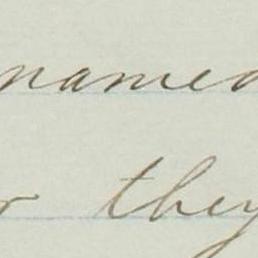 named
they